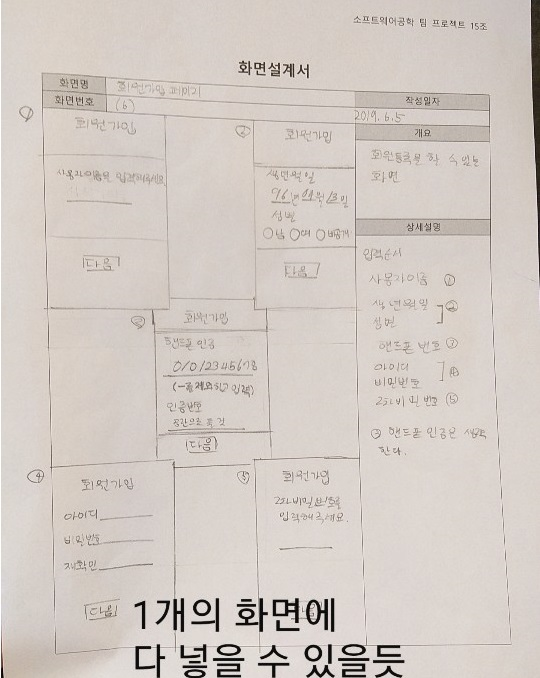 소프트웨어공학 팀 프로젝트 15조
화면설계서
화면명 회원가입 페이지
화면번호 (6)
작성일자
2019. 6. 5
①
회원가입
사용자이름을 입력해주세요
다음
②
회원가입
생년월일
96년 04월 13일
성별
남 여 비공개
다음
③
회원가입
핸드폰 인증
01012345678
(-를 제외하고 입력)
인증번호
다음
④
회원가입
아이디
비밀번호
재확인
다음
⑤
회원가입
2차비밀번호를
입력해주세요.
개요
회원등록을 할 수 있는
화면
상세설명
입력순서
사용자이름 ①
생년월일
성별 ②
핸드폰 번호 ③
아이디
비밀번호 ④
2차비밀번호 ⑤
③ 핸드폰 인증은 생략
한다.
1개의 화면에
다 넣을 수 있을듯